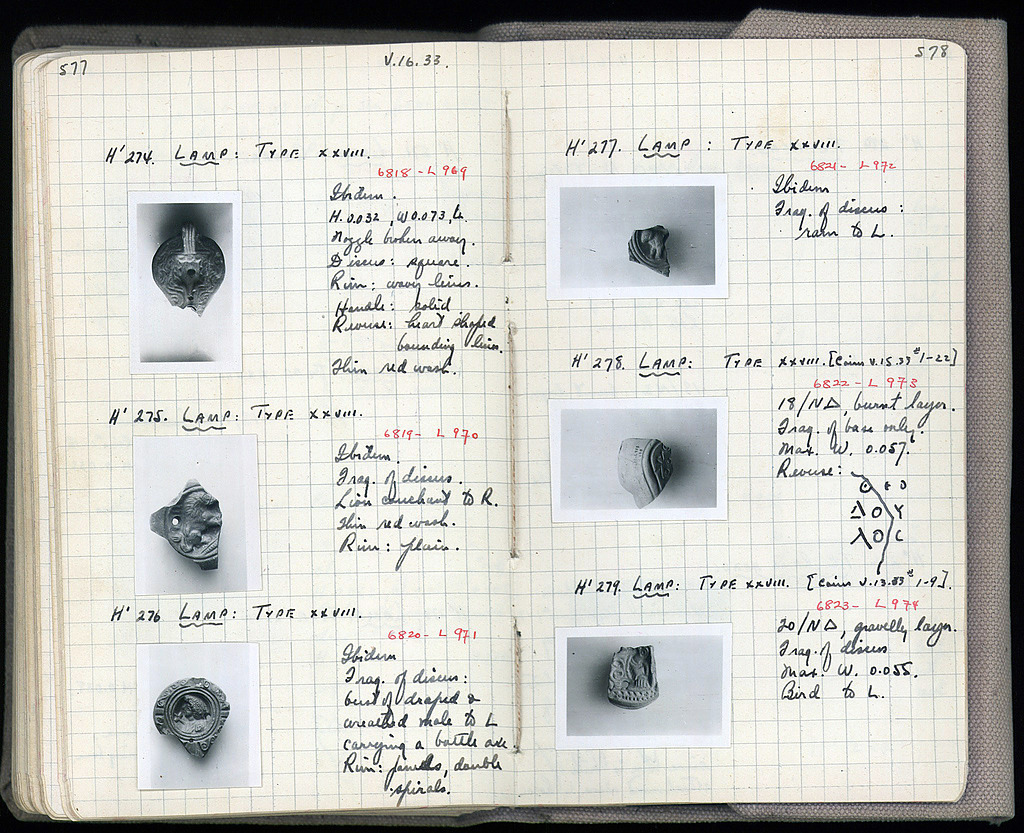 577
V.16.33.
H' 274. LAMP: TYPE XXVIII.
6818 - L 969
Ibidem.
H. 0.032, W 0.073, L.
Nozzle broken away.
Discus: square.
Rim: wavy lines.
Handle: solid
Reverse: heart shaped
bounding lines.
Thin red wash.
H' 275. LAMP: TYPE XXVIII.
6819 - L 970
Ibidem.
Frag. of discus.
Lion couchant to R.
Thin red wash.
Rim: plain.
H' 276 LAMP: TYPE XXVIII.
6820 - L 971
Ibidem
Frag. of discus:
bust of draped &
wreathed male to L
carrying a battle axe.
Rim: panels, double
spirals.
578
H' 277. LAMP: TYPE XXVIII.
6821 - L 972
Ibidem
Frag. of discus:
ram to L.
H' 278. LAMP: TYPE XXVIII. [Coins V.15.33 # 1-22]
6822 - L 973
18/ΝΔ, burnt layer.
Frag. of base only.
Max. W. 0.057.
Reverse:
Δ Ο Υ
Λ Ο C
H' 279. LAMP: TYPE XXVIII. [Coins V.13.33 # 1-9].
6823 - L 974
20/ΝΔ, gravelly layer.
Frag. of discus
Max. W. 0.055.
Bird to L.